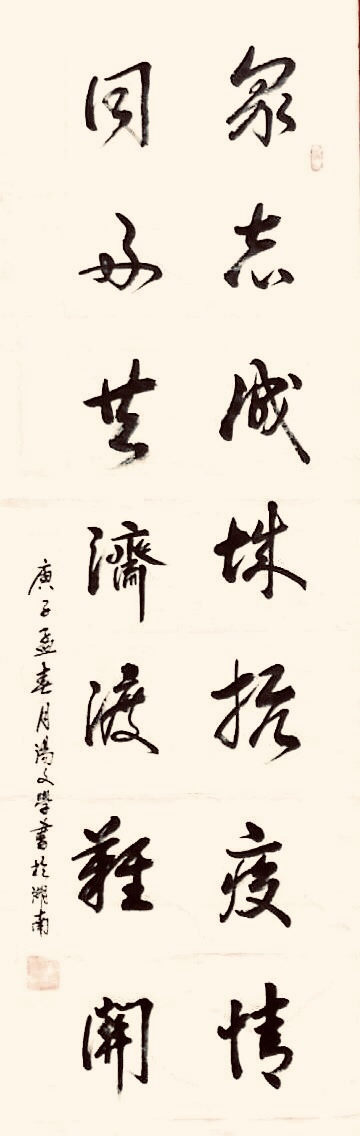 衆志成城抗疫情
同舟共濟渡難關
庚子孟春月湯文學書於湖南